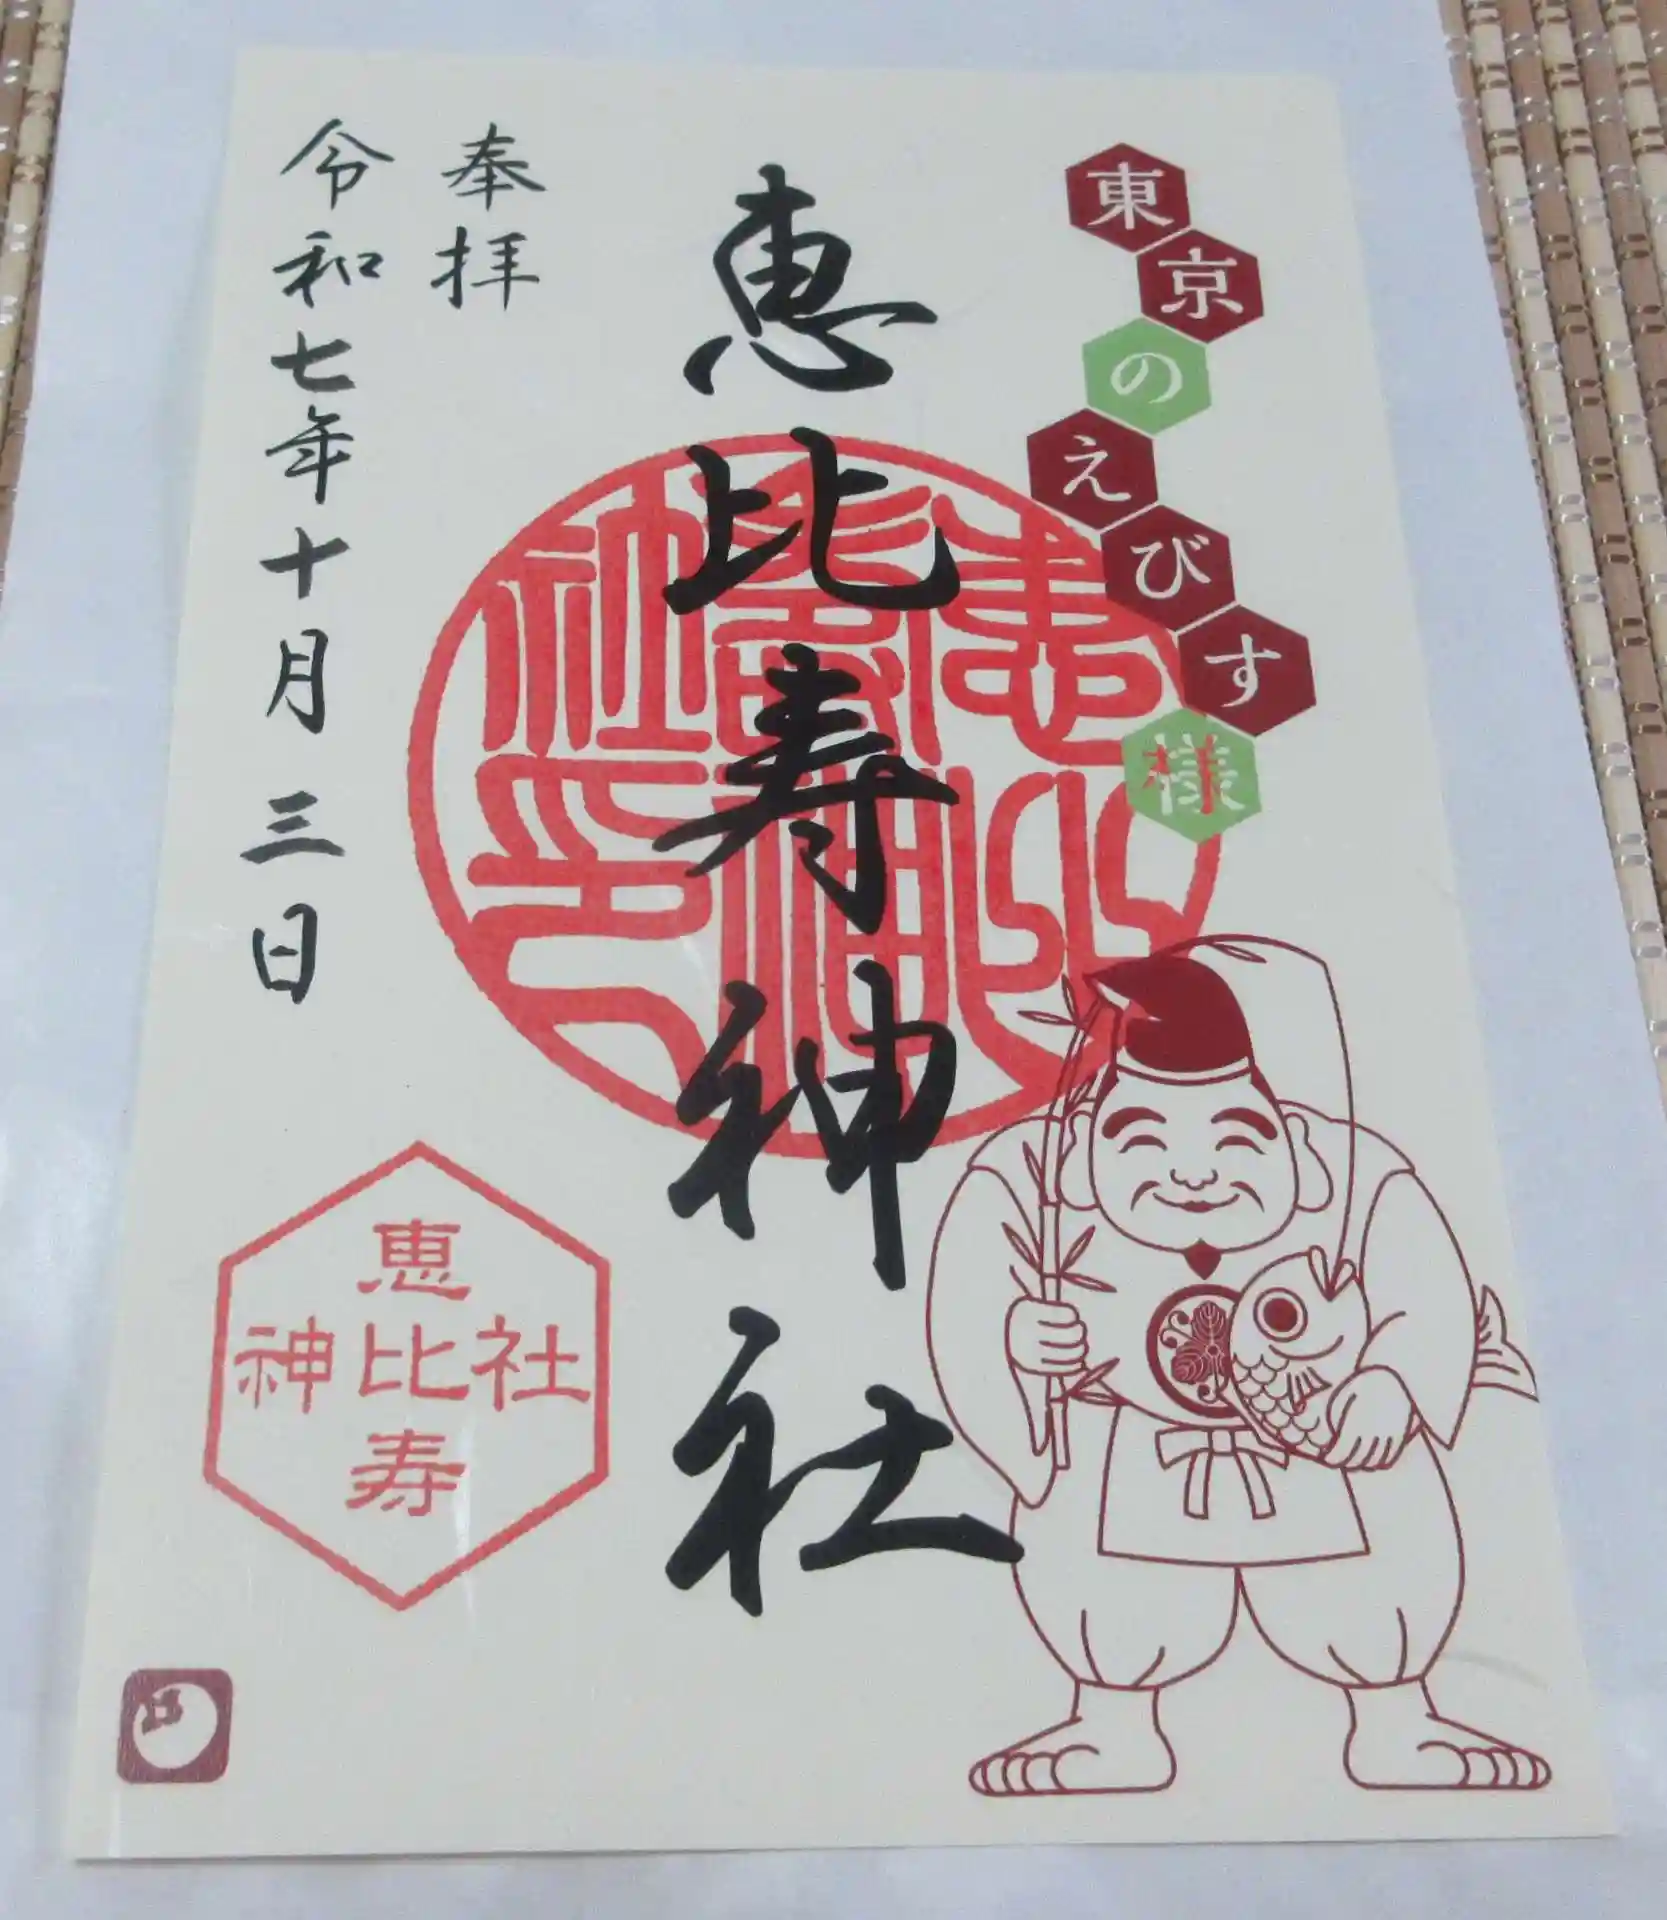 東京のえびす様
恵比寿神社
恵比寿神社印
奉拝
令和七年十月三日
恵比寿
神社